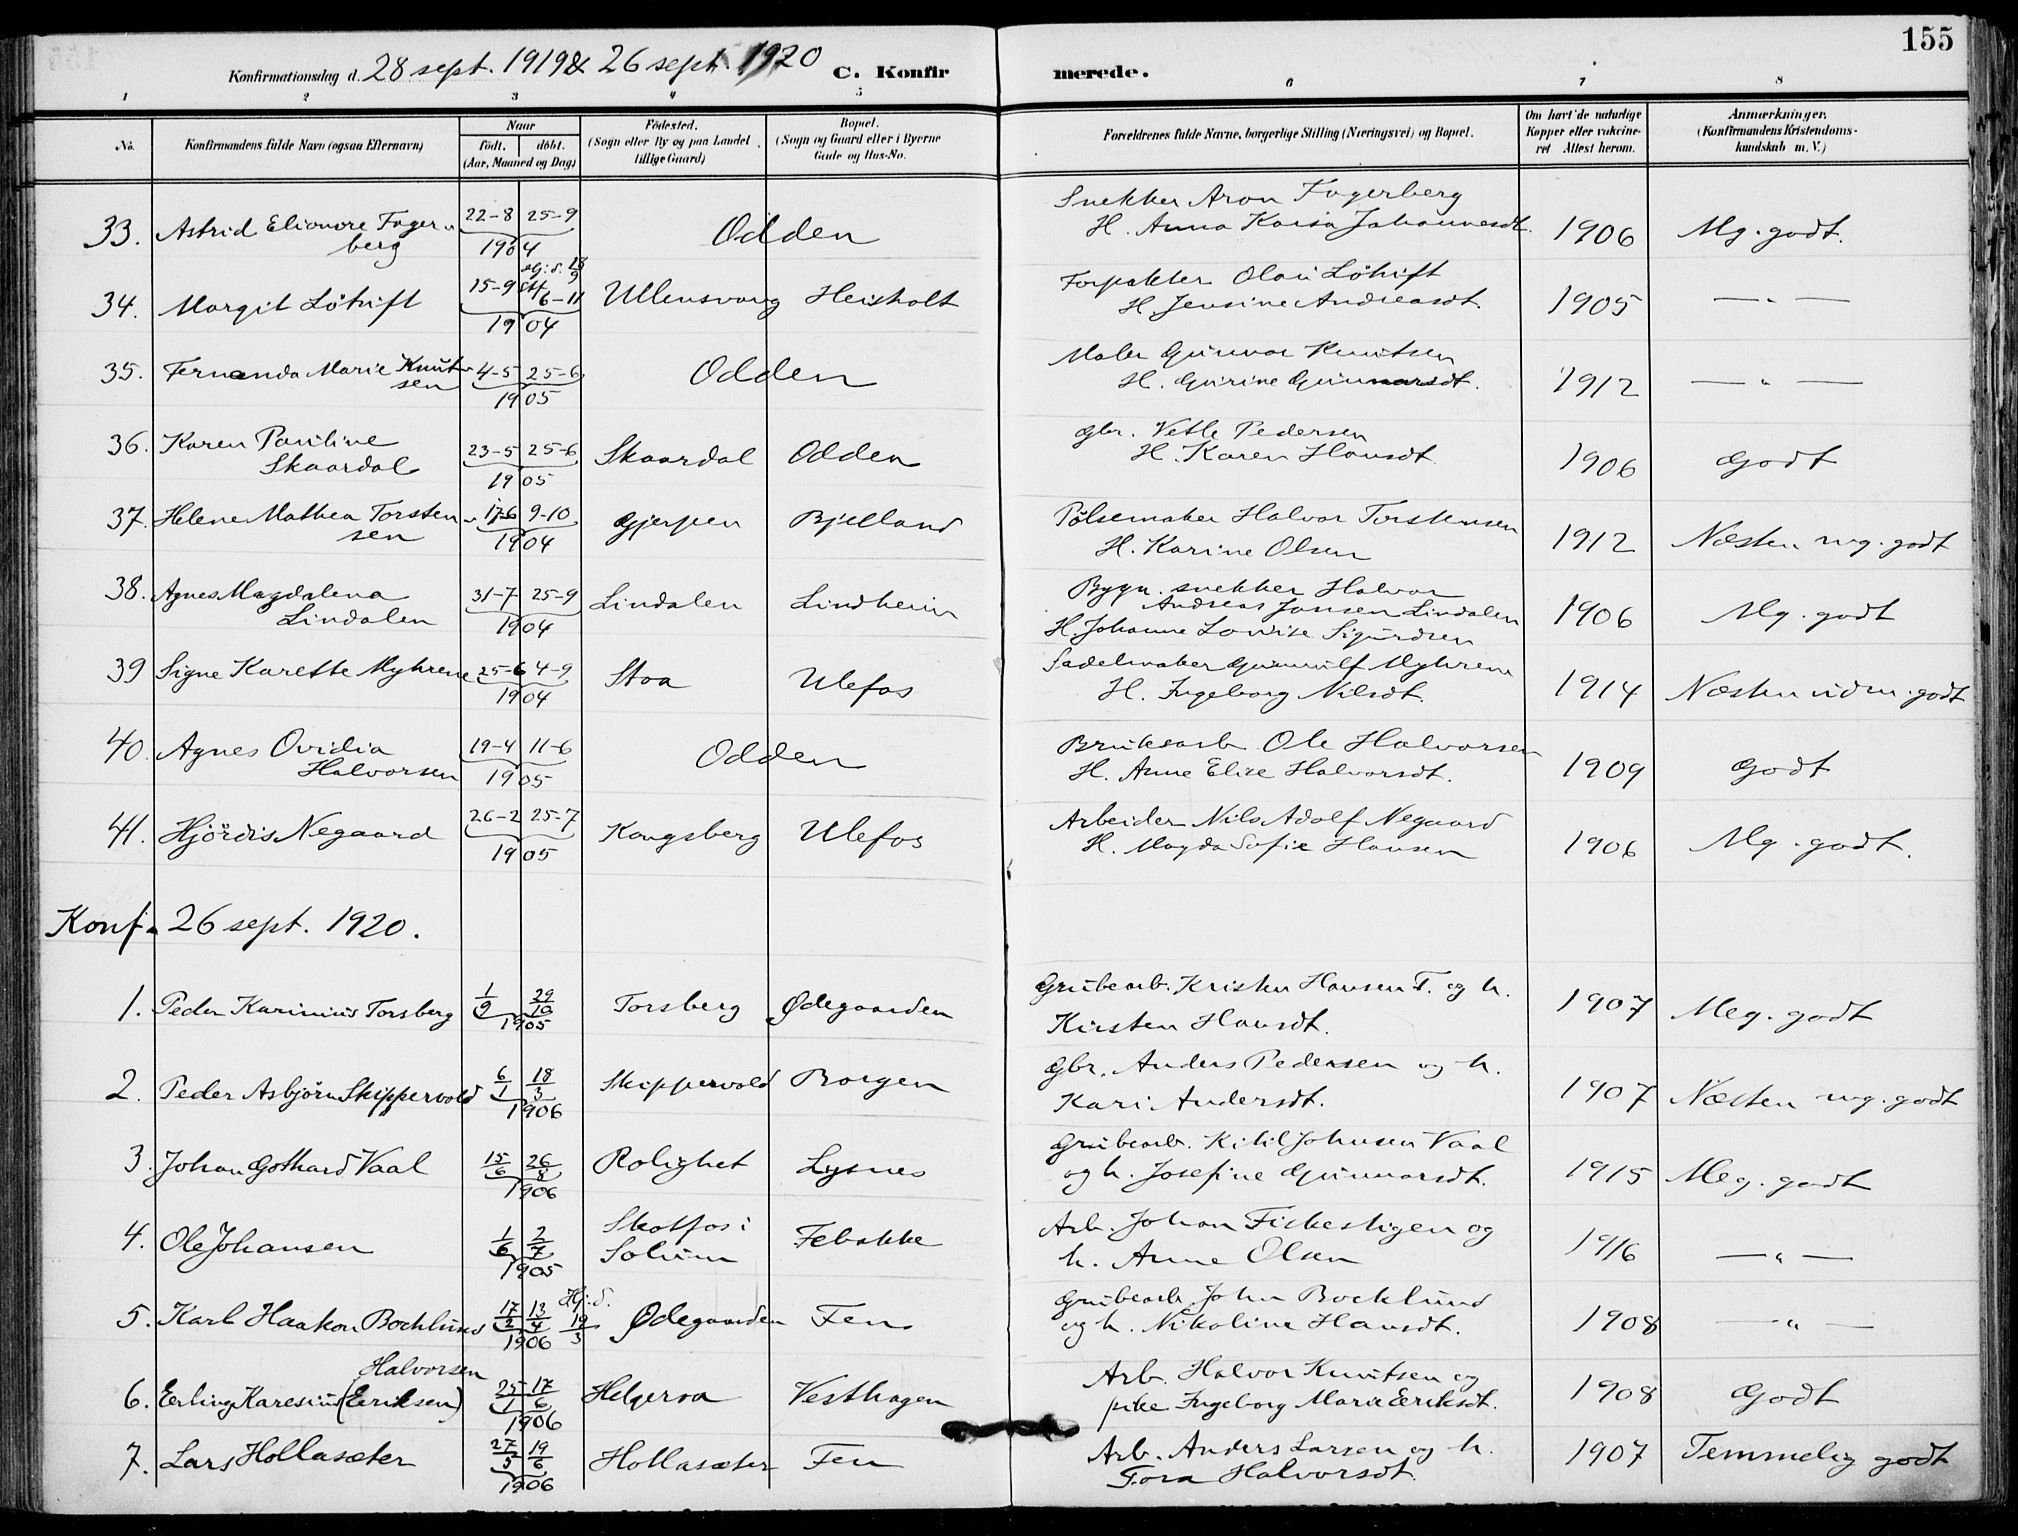 155
Konfirmationsdag d. 28 sept. 1919 & 26 sept. 1920 C. Konfirmerede.
1 2 3 4 5 6 7 8
No. Konfirmandens fulde Navn (ogsaa Efternavn) Naar født. døbt. (Aar, Maaned og Dag) Fødested. (Sogn eller By og paa Landet tillige Gaard) Bopæl. (Sogn og Gaard eller i Byerne Gade og Hus-No. Forældrenes fulde Navne, borgerlige Stilling (Næringsvei) og Bopæl. Om havt de naturlige Kopper eller vakcineret Attest herom. Anmærkninger. (Konfirmandens Kristendomskundskab m. V.)
33. Astrid Elionore Fagerberg 22-8 25-9 1904 Odden Snekker Aron Fagerberg H. Anna Kaisa Johannesdt. 1906 Mg. godt.
34. Margit Löhift 15-9 6-11 1904 Ullensvang Heisholt Forpakter Olai Löhift H. Jensine Andreasdt. 1905 — " —
35. Fernanda Marie Knutsen 4-5 25-6 1905 Odden Maler Gunnar Knutsen H. Gurine Gunnarsdt. 1912 — " —
36. Karen Pauline Skaardal 23-5 25-6 1905 Skaardal Odden Gbr. Vetle Pedersen H. Karen Hansdt. 1906 Godt
37. Helene Mathea Torstensen 17-6 9-10 1904 Gjerpen Bjelland Pølsemaker Halvor Torstensen H. Karine Olsen 1912 Næsten mg. godt
38. Agnes Magdalena Lindalen 31-7 25-9 1904 Lindalen Lindheim Bygn. snekker Halvor Andreas Jansen Lindalen H. Johanne Lovise Sigurdsen 1906 Mg. godt
39 Signe Karette Myhrene 25-6 4-9 1904 Stoa Ulefos Sadelmaker Gunnulf Myhrene H. Ingeborg Nilsdt. 1914 Næsten udm. godt
40. Agnes Ovidia Halvorsen 19-4 11-6 1905 Odden Bruksarb. Ole Halvorsen H. Anne Elise Halvorsdt. 1909 Godt
41. Hjördis Negaard 26-2 25-7 1905 Kongsberg Ulefos Arbeider Nils Adolf Negaard H. Magda Sofie Hansen 1906 Mg. godt.
Konf. 26 sept. 1920.
1. Peder Karinius Torsberg 1/9 29/10 1905 Torsberg Ødegaarden Grubearb. Kristen Hansen T. og h. Kirsten Hansdt. 1907 Meg. godt
2. Peder Asbjørn Skippervold 6/1 18/3 1906 Skippervold Borgen Gbr. Anders Pedersen og h. Kari Andersdt. 1907 Næsten mg. godt
3. Johan Gothard Vaal 15/6 26/8 1906 Rolighet Lysnes Grubearb. Kitil Johnsen Vaal og h. Josefine Gunnarsdt. 1915 Meg. godt
4. Ole Johansen 1/6 2/7 1905 Skotfos i Solum Febakke Arb. Johan Fiskestigen og h. Anne Olsen 1916 — " —
5. Karl Haakon Bocklund 17/2 13/4 Hj. d. 19/3 1906 Ødegaarden Fen Grubearb. John Bocklund og h. Nikoline Hansdt. 1908 — " —
6. Erling Karesius Halvorsen (Eriksen) 25/1 17/6 1906 Helgeroa Vesthagen Arb. Halvor Knutsen og pike Ingeborg Marie Eriksdt. 1908 Godt
7. Lars Hollasæter 27/5 19/6 1906 Hollasæter Fen Arb. Anders Larsen og h. Tora Halvorsdt. 1907 Temmelig godt